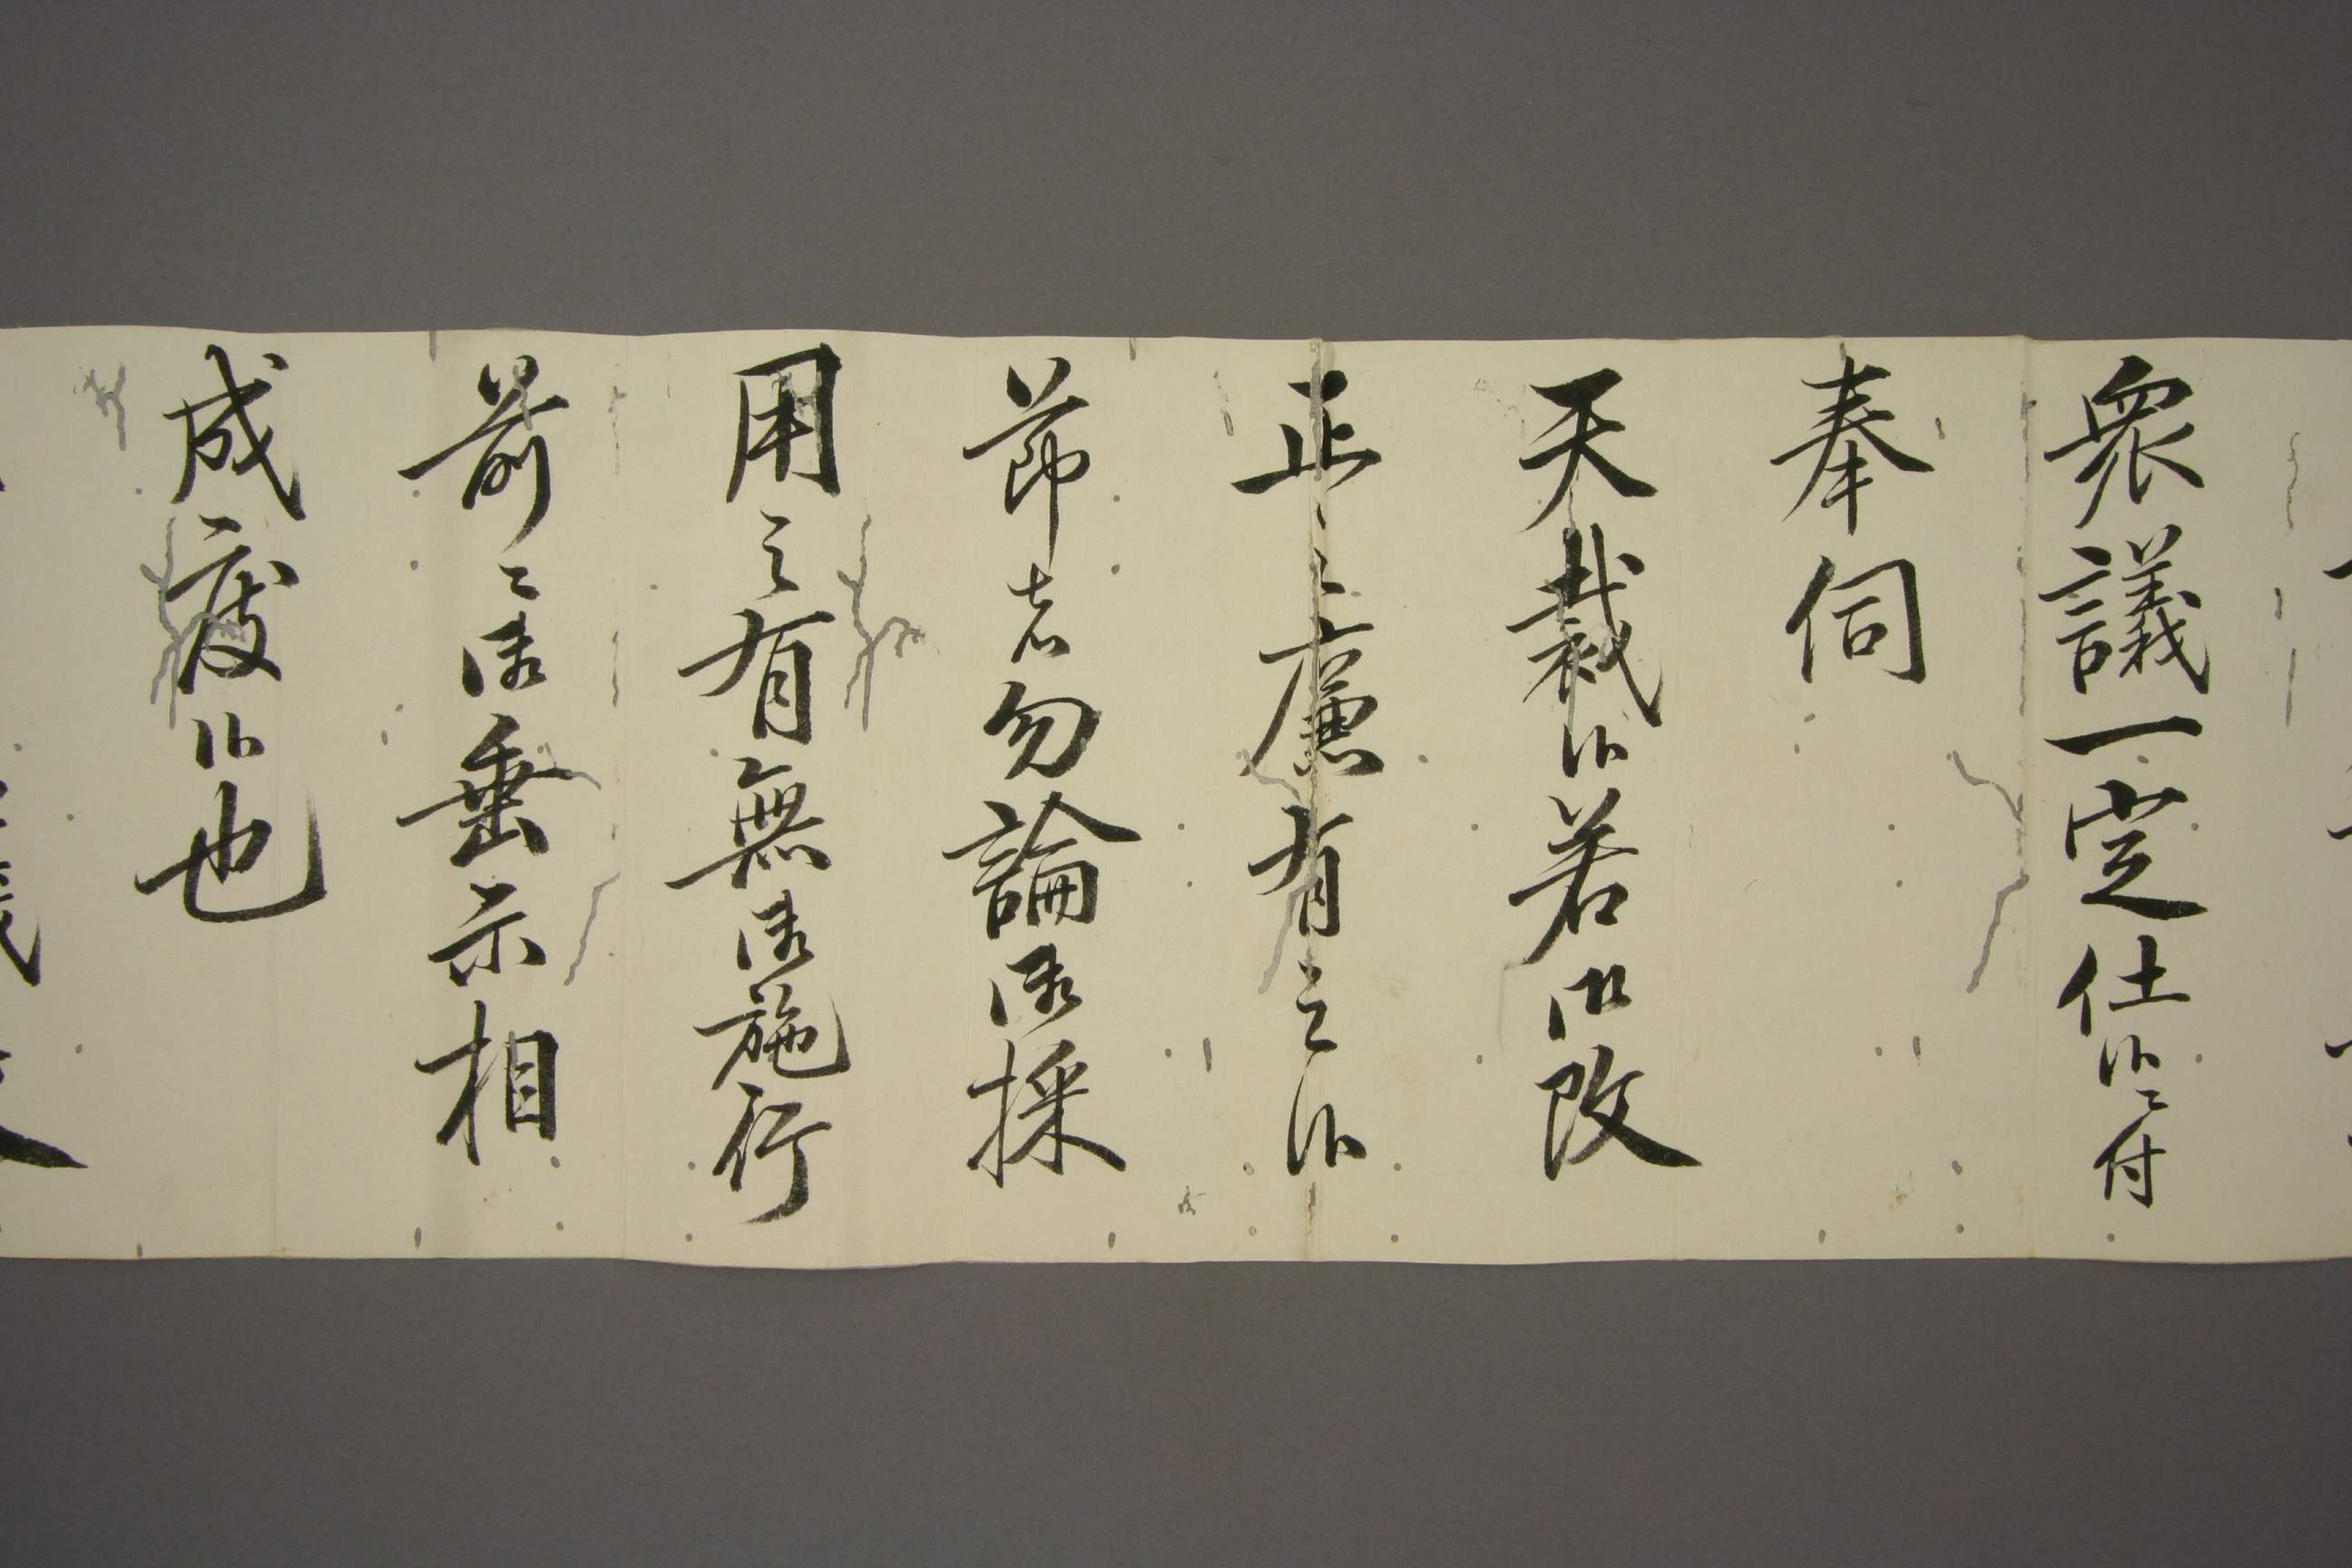 衆議一定仕候ニ付
奉伺
天裁候若御改
正之廉有之候
節者勿論御採
用之有無御施行
前ニ御垂示相
成度候也